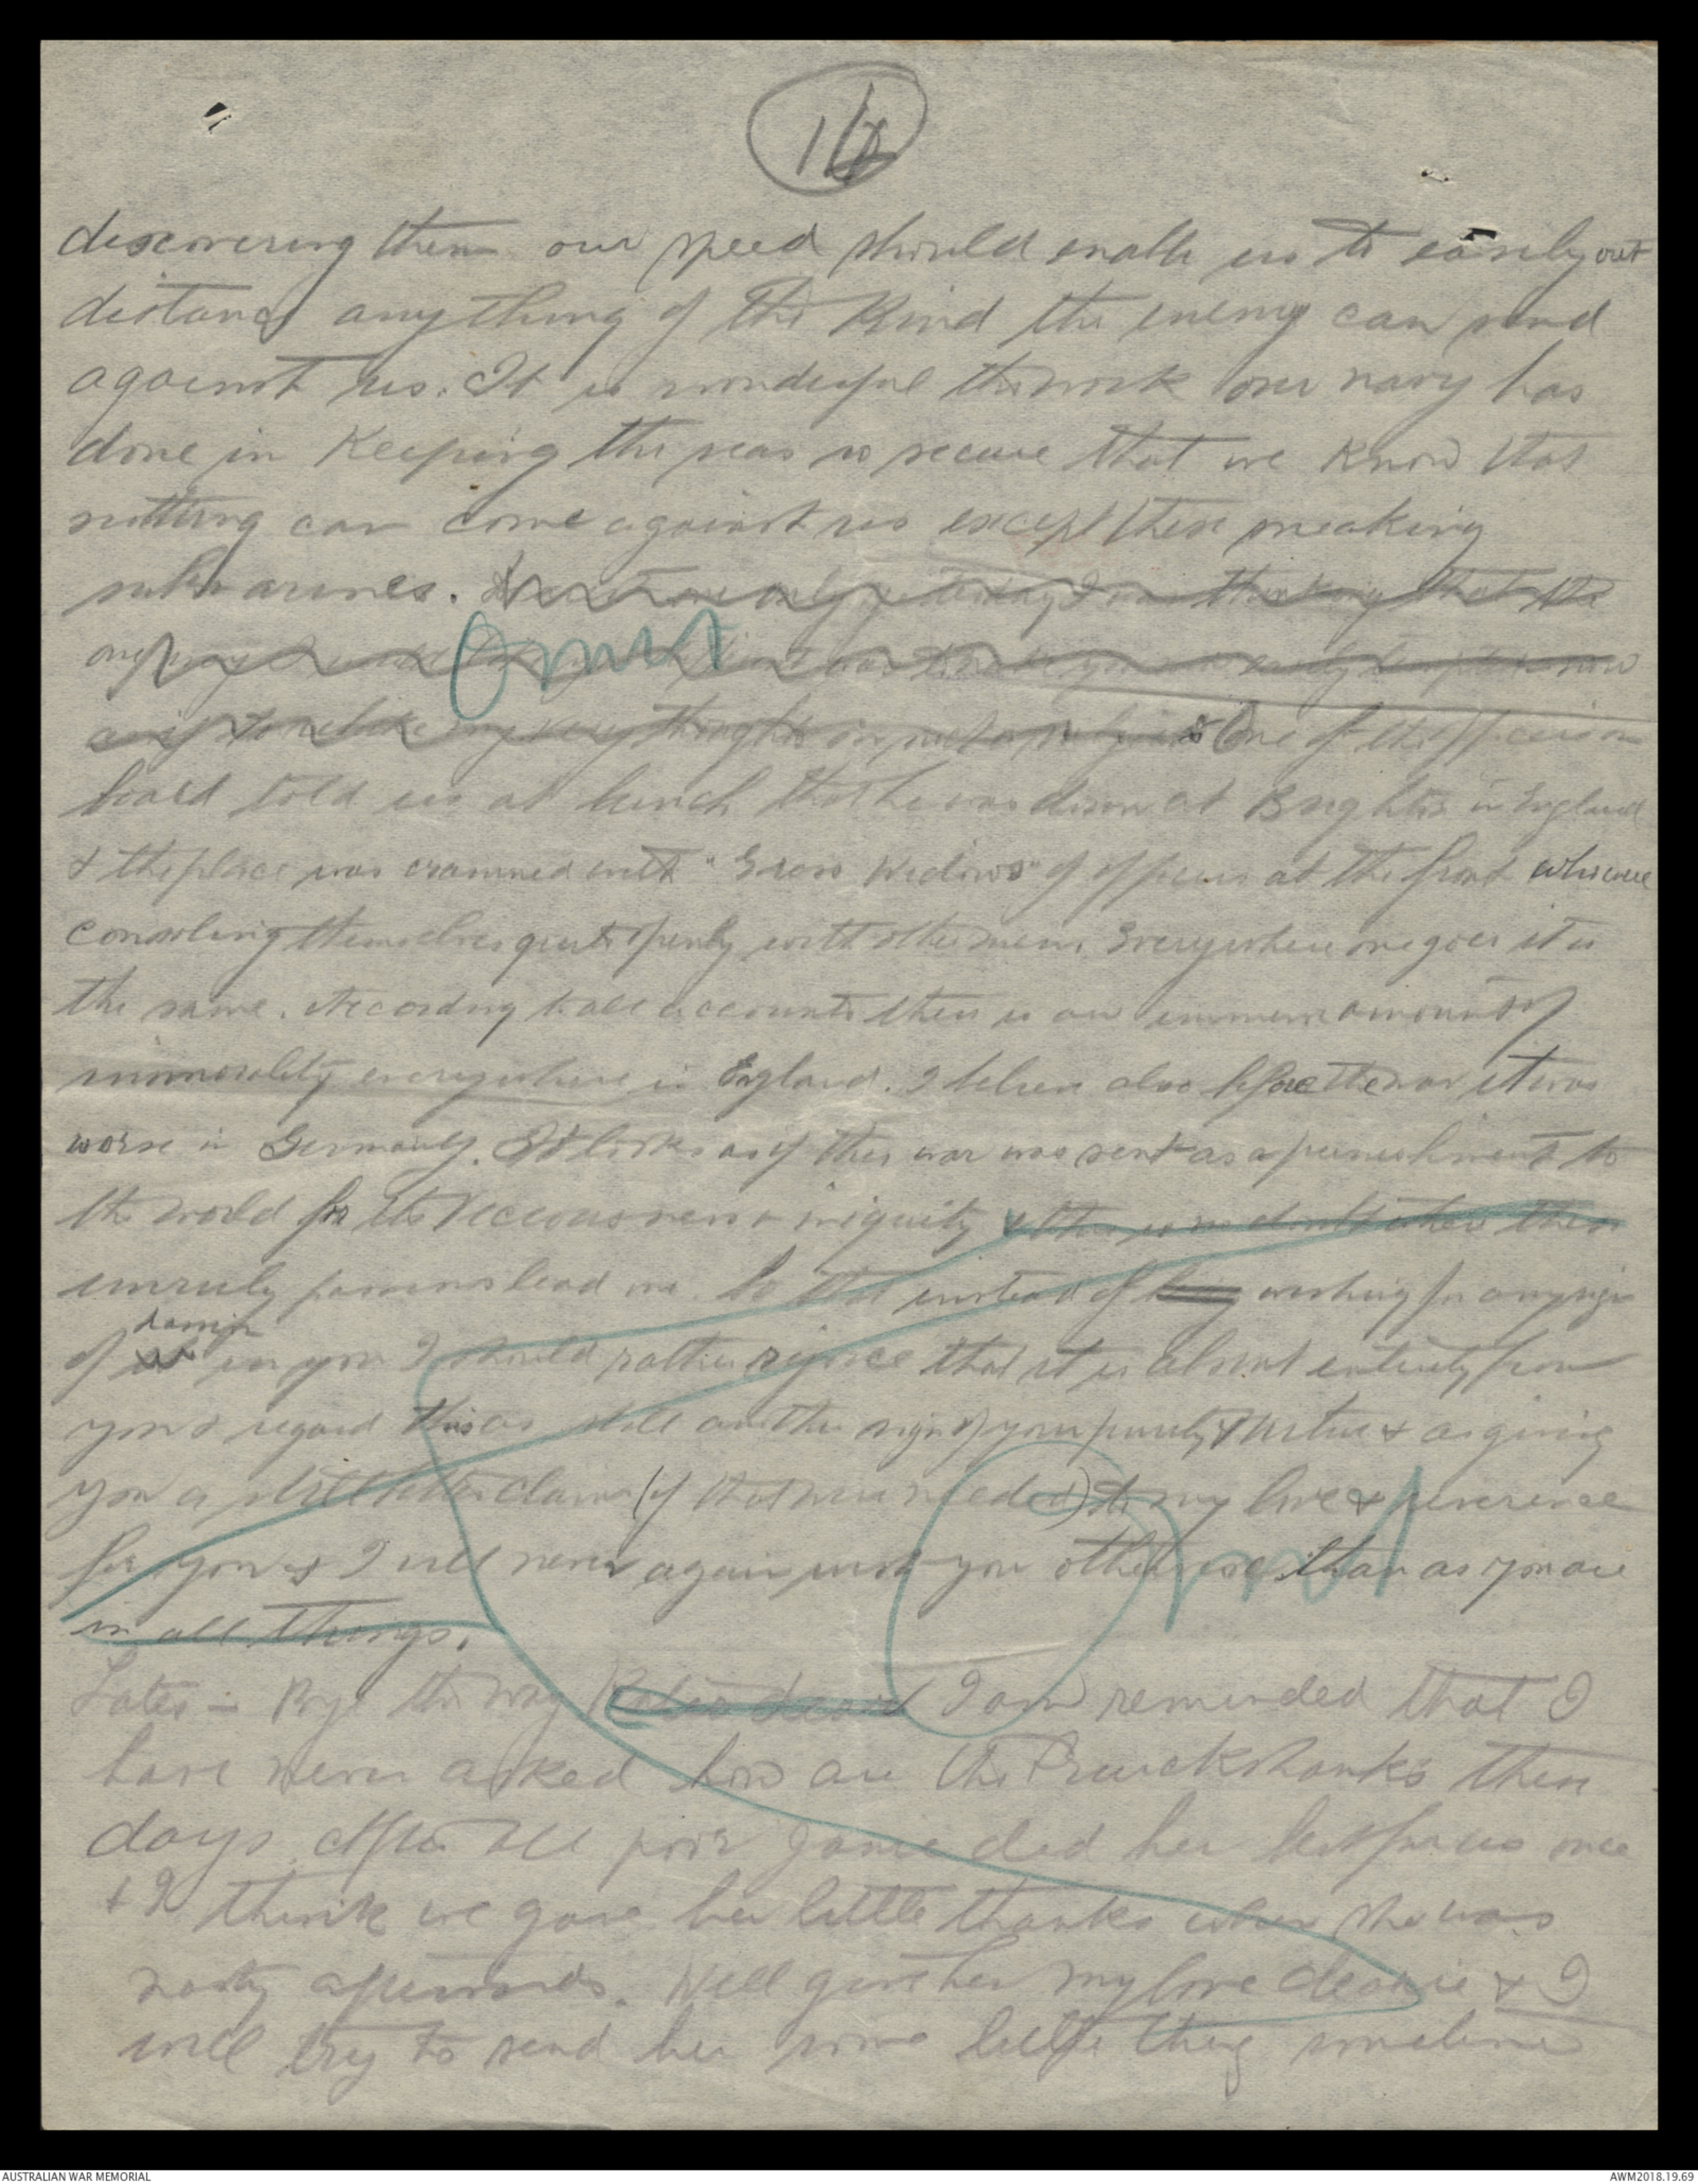 16
discovering them our speed should enable us to easily out
distance anything of the kind the enemy can send
against us. It is wonderful the work our navy has
done in keeping the seas so secure that we know that
nothing can come against us except these sneaking
submarines. only yesterday I was thinking that the
Omit
my very thoughts One of the officers on
board told us at lunch that he was down at Brighton in England
& the place was crammed with "Grass Widows" of officers at the front who were
consoling themselves quite openly with other men. Everywhere one goes it is
the same. According to all accounts there is an immense amount of
immorality everywhere in England. I believe also before the war it was
worse in Germany. It looks as if this war was sent as a punishment to
the world for its viciousness & iniquity & there is no doubt where these
unruly passions lead one. So that instead of wishing for any sign
of in you I should rather rejoice that it is absent entirely from
you & regard this as still another sign of your purity & virtue & as giving
you a still better claim (if that were needed) to my love & reverence
for you & I will never again wish you otherwise than as you are
Omit
in all things.
Later - Bye the way I am reminded that I
have never asked how are the Cruickshanks these
days. After all poor Janie did her best for us once
& I think we gave her little thanks when she was
nasty afterwards. Well give her my love dearie & I
will try to send her some little thing sometime
AUSTRALIAN WAR MEMORIAL
AWM2018.19.69